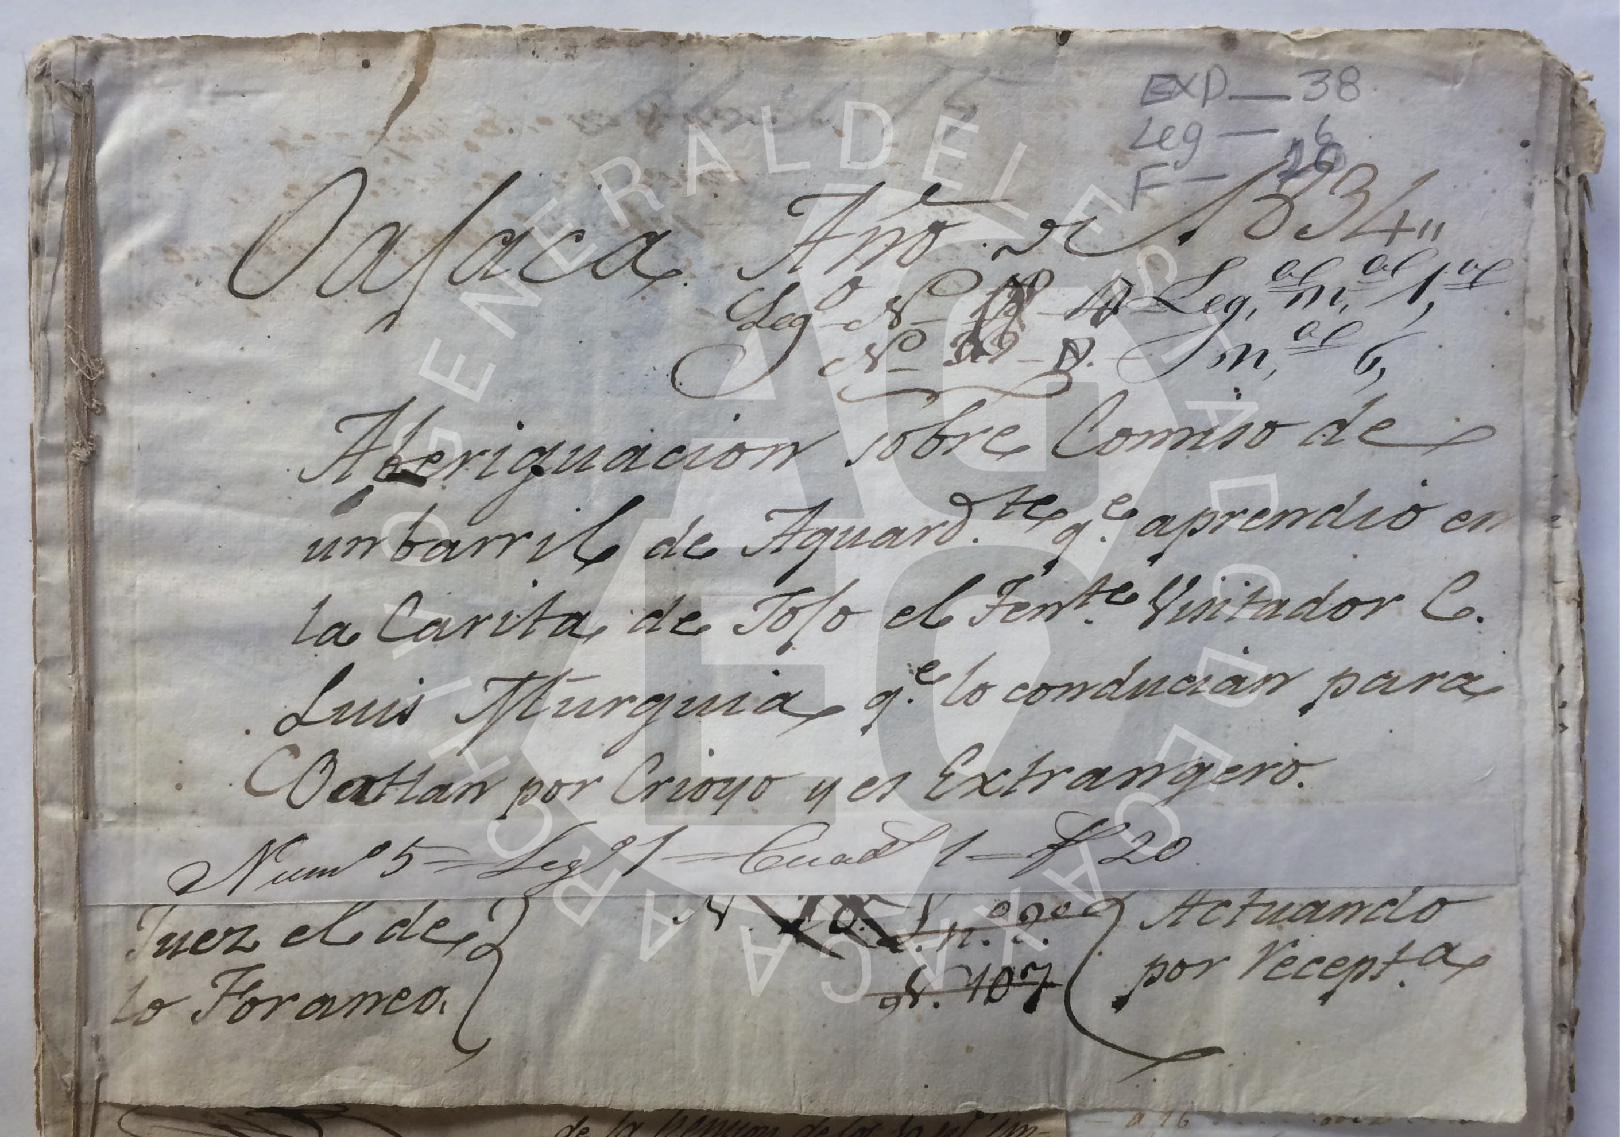 EXD — 38
Leg — 6
F —
Oajaca Año de 1834,,
Leg.o N.o Leg. m. 1,
N.o m. 6,
Aberiguacion sobre Comiso de
un barril de Aguard.te q.e aprendio en
la Garita de Jojo el Ten.te Visitador C.
Luis Murguia q.e lo conducian para
Ocotlan por Crioyo y es Extrangero.
Num.o 5 = Leg.o 1 — Cuad.o 1 — f. 20
Juez el de
lo Foraneo.
N. 107
Actuando
por Recept.a
ARCHIVO GENERAL DEL ESTADO DE OAXACA
AGEO